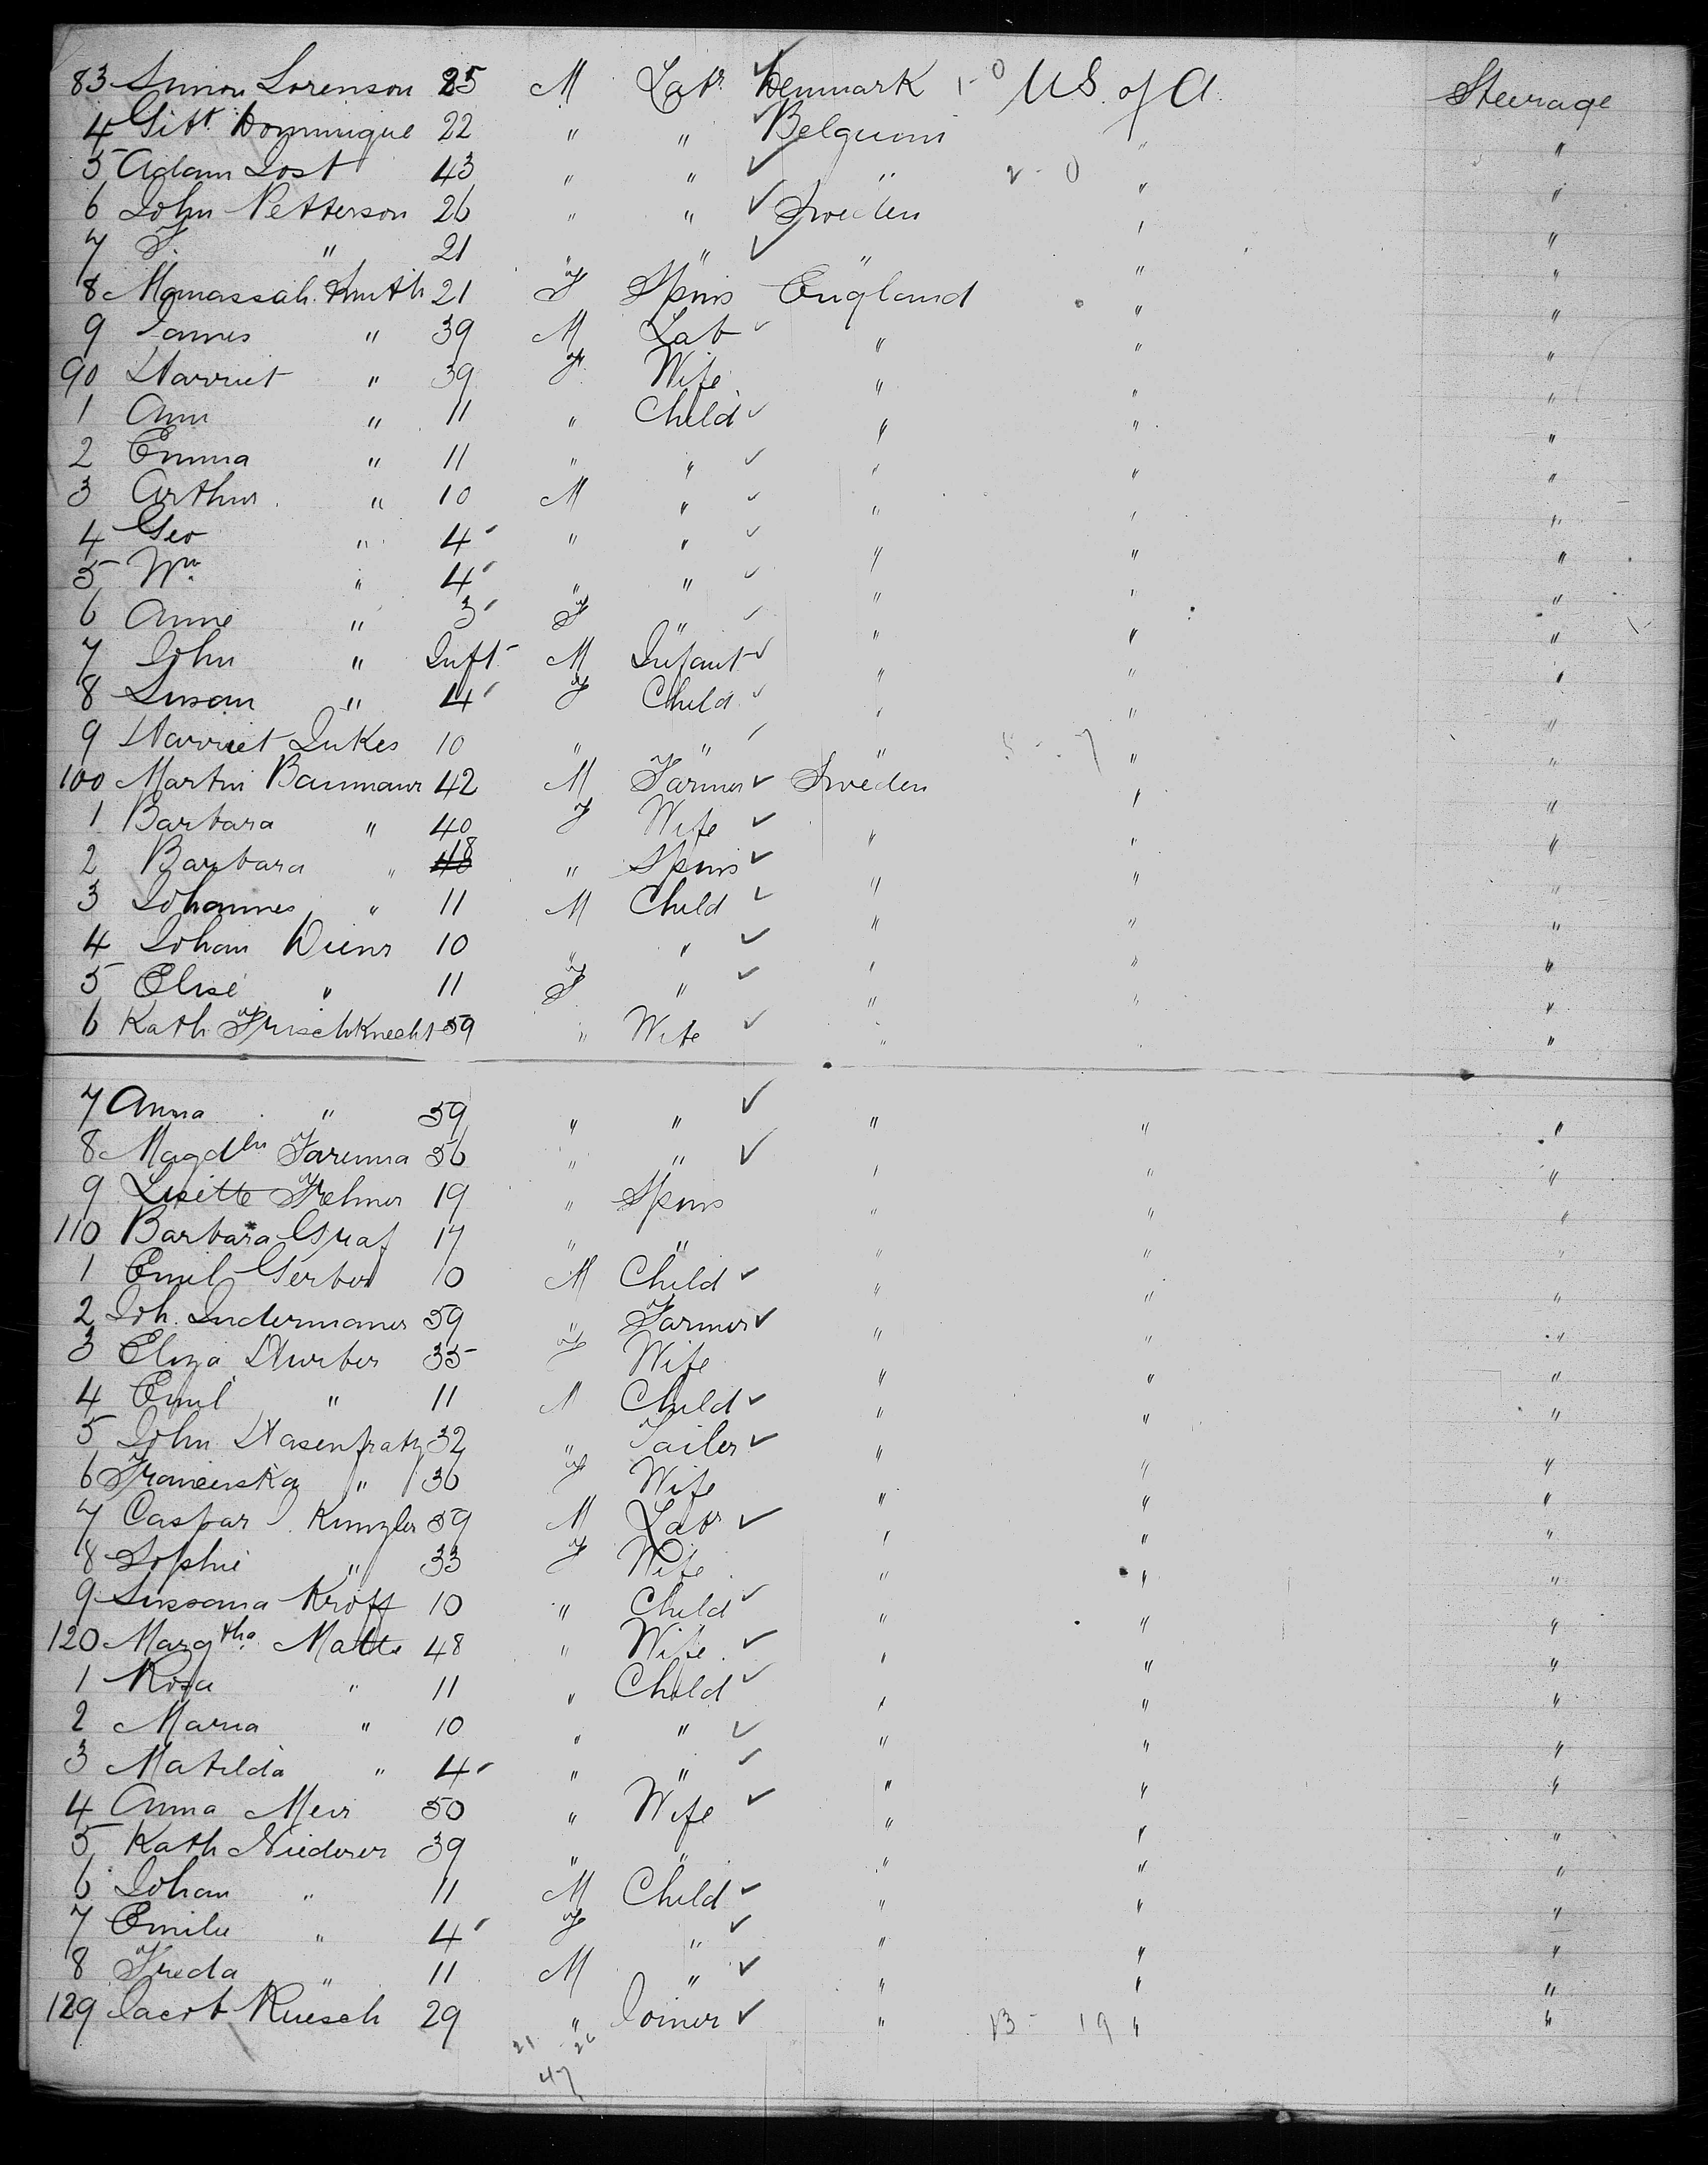 83 Simon Lorenson 25 M Labr Denmark 1-0 U.S. of A. Steerage
4 Gitt Dominique 22 " " Belguim " "
5 Adam Jost 43 " " " 2-0 " "
6 John Petterson 26 " " Sweden " "
7 J. " 21 " " " " "
8 Manassah Smith 21 F Spins England " "
9 James " 39 M Lab " " "
90 Harriet " 39 F Wife " " "
1 Ann " 11 " Child " " "
2 Emma " 11 " " " " "
3 Arthur " 10 M " " " "
4 Geo " 4 " " " " "
5 Wm " 4 " " " " "
6 Anne " 3 F " " " "
7 John " Inft M Infant " " "
8 Susan " 4 F Child " " "
9 Harriet Jukes 10 " " " 7 " "
100 Martin Baumann 42 M Farmer Sweden " "
1 Barbara " 40 F Wife " " "
2 Barbara " 18 " Spins " " "
3 Johannes " 11 M Child " " "
4 Johan Diener 10 " " " " "
5 Elise " 11 F " " " "
6 Kath Frischknecht 59 " Wife " " "
7 Anna " 59 " " " " "
8 Magdln Farenna 56 " " " " "
9 Lisette Frehner 19 " Spins " " "
110 Barbara Graf 17 " " " " "
1 Emil Gerber 10 M Child " " "
2 Joh. Indermaner 59 " Farmer " " "
3 Eliza Hurber 35 F Wife " " "
4 Emil " 11 M Child " " "
5 John Hasenfratz 32 " Tailer " " "
6 Franciska " 30 F Wife " " "
7 Caspar J. Kunzler 39 M Labr " " "
8 Sophie " 33 F Wife " " "
9 Sussana Kroff 10 " Child " " "
120 Margtha Matte 48 " Wife " " "
1 Rosa " 11 " Child " " "
2 Maria " 10 " " " " "
3 Matilda " 4 " " " " "
4 Anna Meir 50 " Wife " " "
5 Kath Niederer 39 " " " " "
6 Johan " 11 M Child " " "
7 Emilie " 4 F " " " "
8 Freda " 11 M " " " "
129 Jacob Ruesch 29 " Joiner " 13 - 19 " "
21 26
47